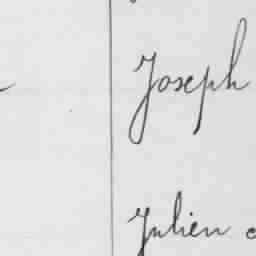 Joseph
Julien